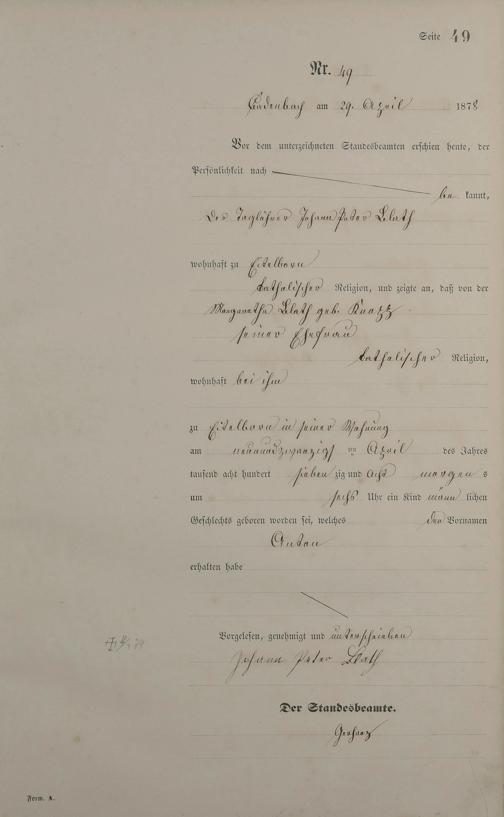 Seite 49
Nr. 49
Cadenbach am 29. April 1878
Vor dem unterzeichneten Standesbeamten erschien heute, der
Persönlichkeit nach
be kannt,
der Taglöhner Johann Peter Blath
wohnhaft zu Eitelborn
katholischer Religion, und zeigte an, daß von der
Margaretha Blath geb.
seiner Ehefrau
katholischer Religion,
wohnhaft bei ihm
zu Eitelborn in seiner Wohnung
am neunundzwanzigsten April des Jahres
tausend acht hundert sieben zig und acht morgen s
um sechs Uhr ein Kind männ lichen
Geschlechts geboren worden sei, welches den Vornamen
Anton
erhalten habe
Vorgelesen, genehmigt und unterschrieben
Johann Peter Blath
Der Standesbeamte.
Gerharz
Form. A.